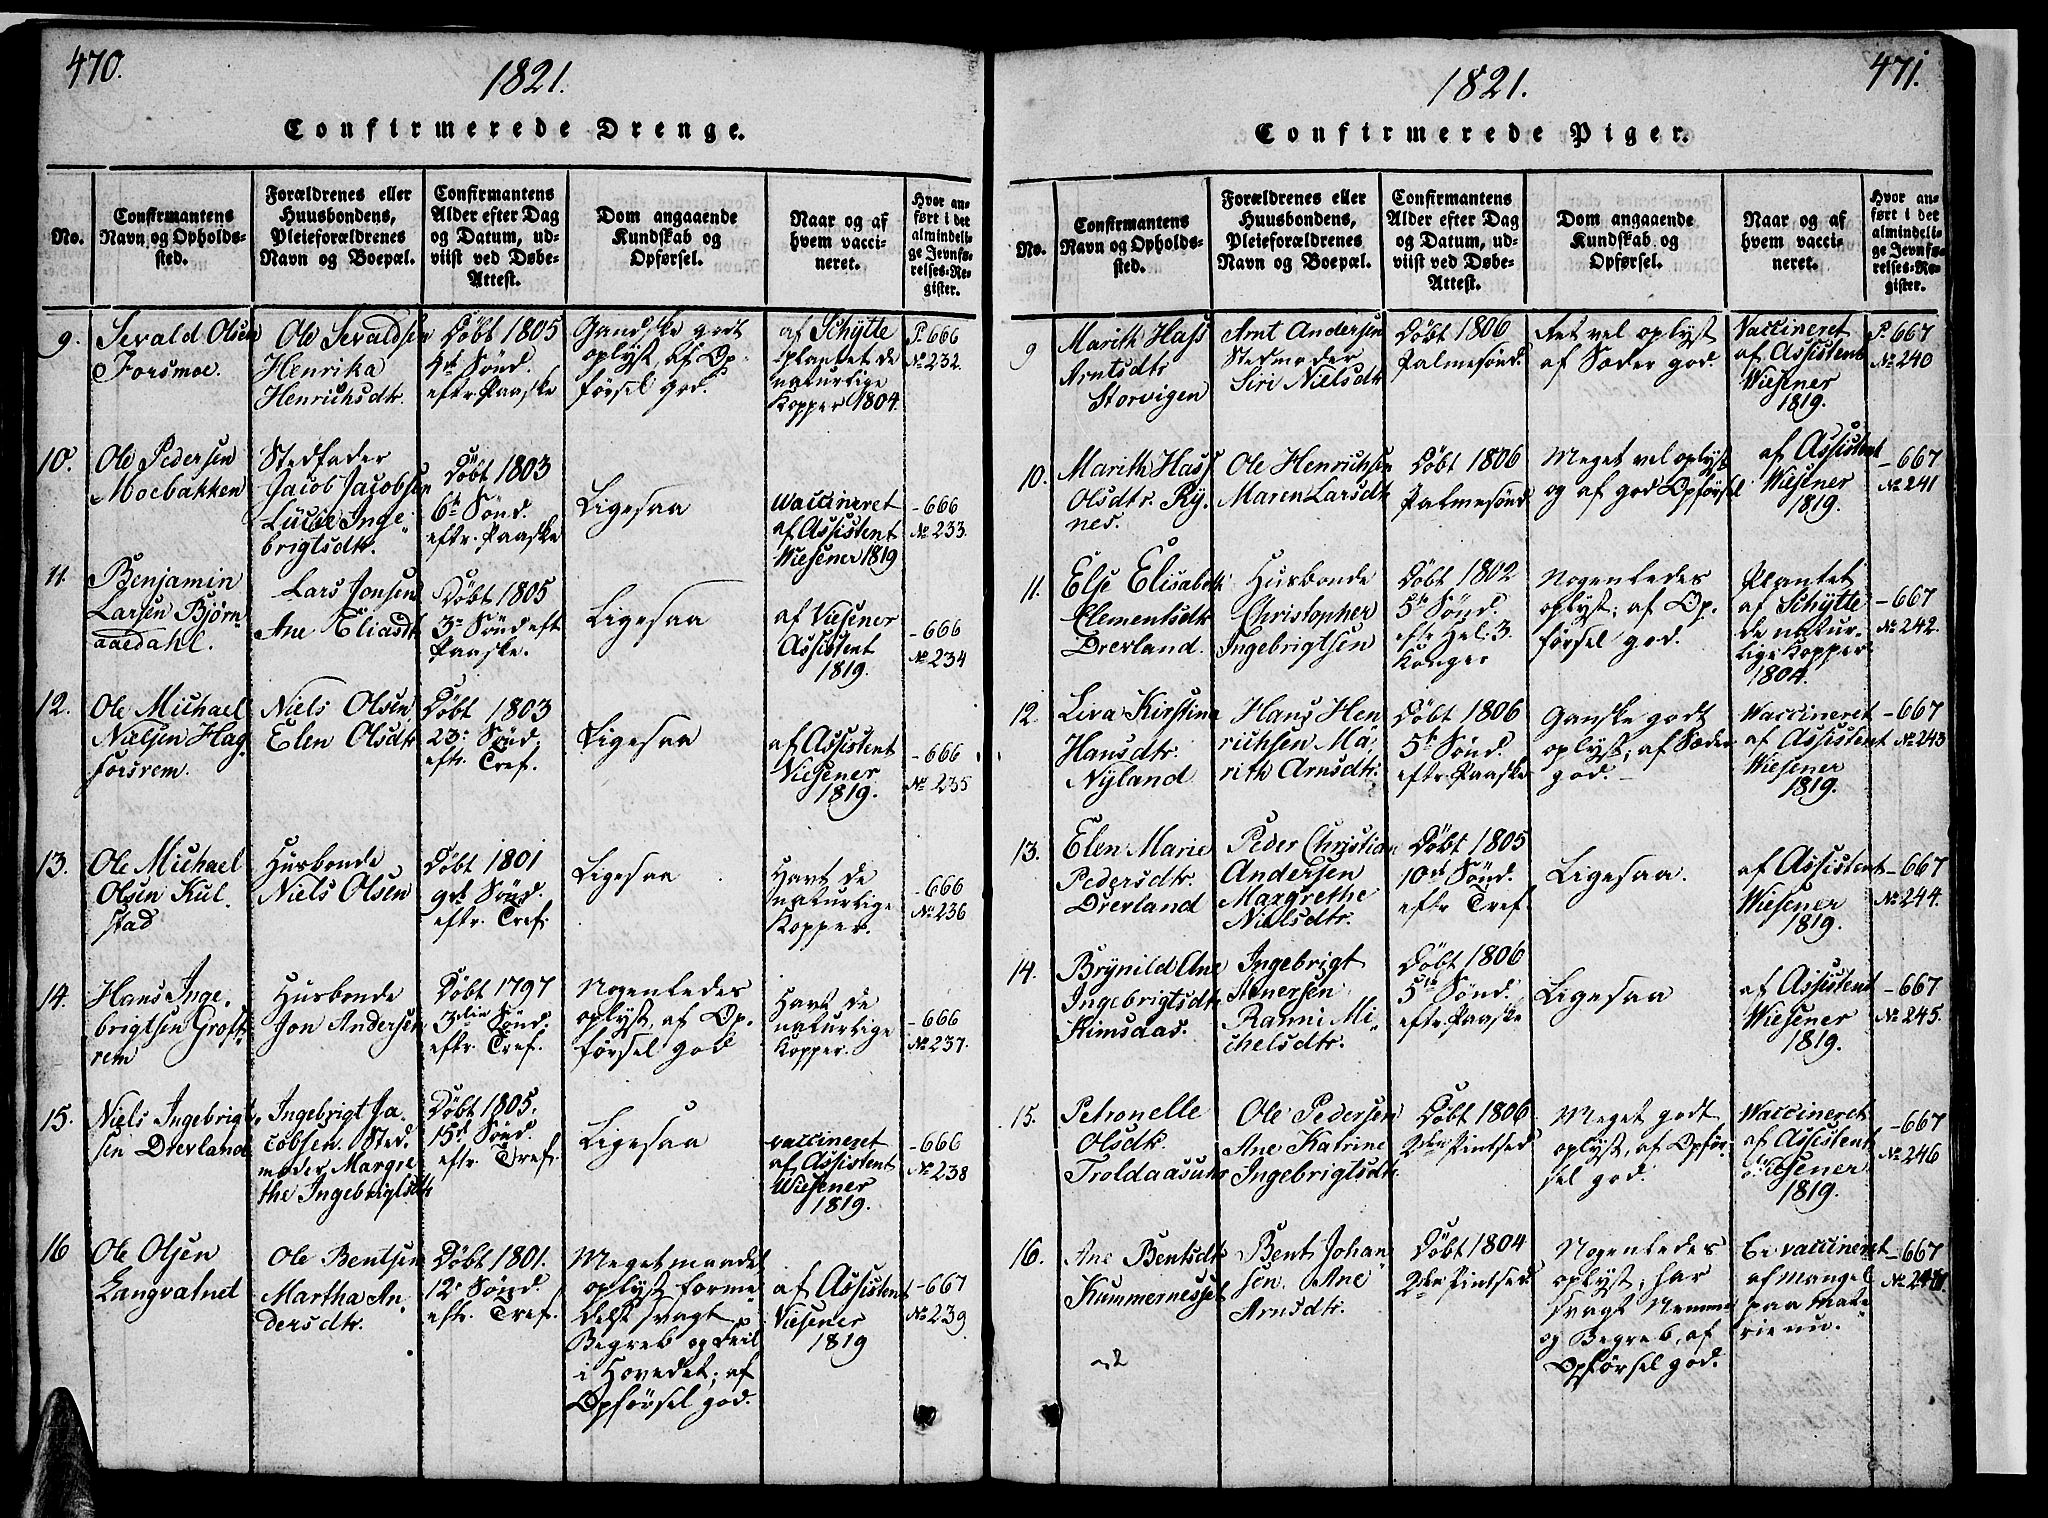 470.
1821.
Confirmerede Drenge.
No.
Confirmantens
Navn og Opholds-
sted.
Forældrenes eller
Huusbondens,
Pleieforældrenes
Navn og Boepæl.
Confirmantens
Alder efter Dag
og Datum, ud-
viist ved Døbe-
Attest.
Dom angaaende
Kundskab og
Opførsel.
Naar og af
hvem vacci-
neret.
Hvor an-
ført i det
almindeli-
ge Jevnfø-
relses-Re-
gister.
9.
Sevald Olsen
Forsmoe.
Ole Sevaldsen
Henrika
Henrichsdtr.
Døbt 1805
4de Sønd.
eftr. Paaske
Gandske godt
oplyst, af Op-
førsel god.
af Schytte
plantet de
naturlige
Kopper 1804.
P. 666
No 232.
10.
Ole Pedersen
Moebakken
Stedfader
Jacob Jacobsen
Lucie Inge-
brigtsdtr.
Døbt 1803
6te Sønd.
eftr. Paaske
Ligesaa
Vaccineret
af Assistent
Wiesener 1819
- 666
No 233.
11.
Benjamin
Larsen Bjørn-
aaedahl.
Lars Jonsen
Ane Eliasdtr
Døbt 1805
3de Sønd eft
Paaske.
Ligesaa
af Viesener
Assistent
1819.
- 666
No 234
12.
Ole Michael
Nielsen Hag-
forsrem.
Niels Olsen
Elen Olsdtr
Døbt 1803
23: Sønd.
eftr. Tref.
Ligesaa
af Assistent
Viesener
1819.
- 666
No 235
13.
Ole Michael
Olsen Kul-
stad
Husbonde
Niels Olsen
Døbt 1801
9de Sønd.
eftr. Tref.
Ligesaa
Havt de
naturlige
Kopper.
- 666
No 236
14.
Hans Inge-
brigtsen Groft-
rem
Husbonde
Jon Andersen
Døbt 1797
3die Sønd.
eftr. Tref.
Nogenledes
oplyst, af Op-
førsel god
Havt de
naturlige
Kopper.
- 666
No 237.
15.
Niels Ingebrigt-
sen Drevland
Ingebrigt Ja-
cobsen. Sted-
moder Margre-
the Ingebrigtsdtr
Døbt 1805.
15de Sønd.
eftr. Tref.
Ligesaa
vaccineret
af Assistent
Wiesener
1819.
- 666
No 238
16
Ole Olsen
Langvatned
Ole Bentsen
Martha An-
dersdtr.
Døbt 1801.
12te Sønd.
eftr. Tref.
Meget maadel.
oplyst forme-
delst svagt
Begreb og Feil
i Hovedet; af
Opførsel god.
af Assistent
Viesener
1819
- 667
No 239
471.
1821.
Confirmerede Piger.
No.
Confirmantens
Navn og Opholds-
sted.
Forældrenes eller
Huusbondens,
Pleieforældrenes
Navn og Boepæl.
Confirmantens
Alder efter Dag
og Datum, ud-
viist ved Døbe-
Attest.
Dom angaaende
Kundskab og
Opførsel.
Naar og af
hvem vacci-
neret.
Hvor an-
ført i det
almindeli-
ge Jevnfø-
relses-Re-
gister.
9
Marith Hass
Arntsdtr
Storvigen
Arnt Andersen
Stedmoder
Siri Nielsdtr
Døbt 1806
Palmesønd.
Ret vel oplyst
af Sæder god.
Vaccineret
af Assistent
Wiesener
1819.
P. 667
No 240
10.
Marith Hass
Olsdtr. Ry-
nes.
Ole Henrichsen
Maren Larsdtr
Døbt 1806
Palmesønd
Meget vel oplyst
og af god Opførsel
af Assistent
Wiesener
1819.
- 667
No 241
11.
Else Elisabeth
Clementsdtr
Drevland.
Husbonde
Christopher
Ingebrigtsen
Døbt 1802
5te Sønd.
eftr Hel: 3
Konger
Nogenledes
oplyst; af Op-
førsel god.
Plantet
af Schytte
de natur-
lige Kopper
1804.
- 667
No 242.
12.
Liva Kirstina
Hansdtr.
Nyland
Hans Hen-
richsen Ma-
rith Arnsdtr.
Døbt 1806
5te Sønd.
eftr. Paaske
Ganske godt
oplyst; af Sæder
god.
Vaccineret
af Assistent
Wiesener
1819.
- 667
No 243
13.
Elen Marie
Pedersdtr.
Drevland
Peder Christian
Andersen
Margrethe
Nielsdtr.
Døbt 1805
10de Sønd.
eftr Tref.
Ligesaa.
af Assistent
Wiesener
1819.
- 667
No 244.
14.
Brynild Ane
Ingebrigtsdtr
Kimsaas.
Ingebrigt
Stenersen
Ranni Mi-
chelsdtr.
Døbt 1806
5te Sønd.
eftr. Paaske
Ligesaa
af Assistent
Wiesener
1819.
- 667
No 245.
15.
Petronelle
Olsdtr.
Troldaasund
Ole Pedersen
Ane Katrine
Ingebrigtsdtr.
Døbt 1806
2den Pintsed.
Meget godt
oplyst, af Opfør-
sel god.
Vaccineret
af Assistent
Viesener
1819.
- 667
No 246
16.
Ane Bentsdtr
Kummernesset
Bent Johan-
sen. Ane
Arnsdtr.
Døbt 1804
2den Pintsed.
Nogenledes
oplyst; har
svagt Nemme
og Begreb, af
Opførsel god.
Ei vaccineret
af Mangel
paa Mate-
rie nu.
- 667